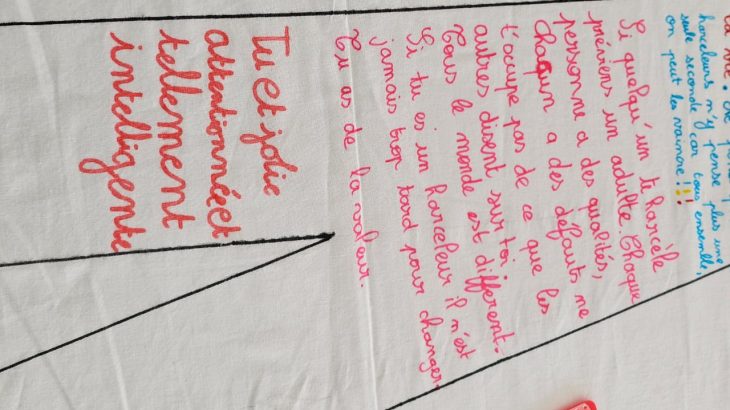 la vie.
harceleurs n'y pense plus une
seule seconde car tous ensemble,
on peut les vaincre !!!
Si quelqu'un te harcèle
préviens un adulte. Chaque
personne a des qualités,
chaqun a des défauts ne
t'occupe pas de ce que les
autres disent sur toi.
Tous le monde est différent.
Si tu es un harceleur il n'est
jamais trop tard pour changer.
Tu as de la valeur.
Tu et jolie
attentionnée et
tellement
intelligente